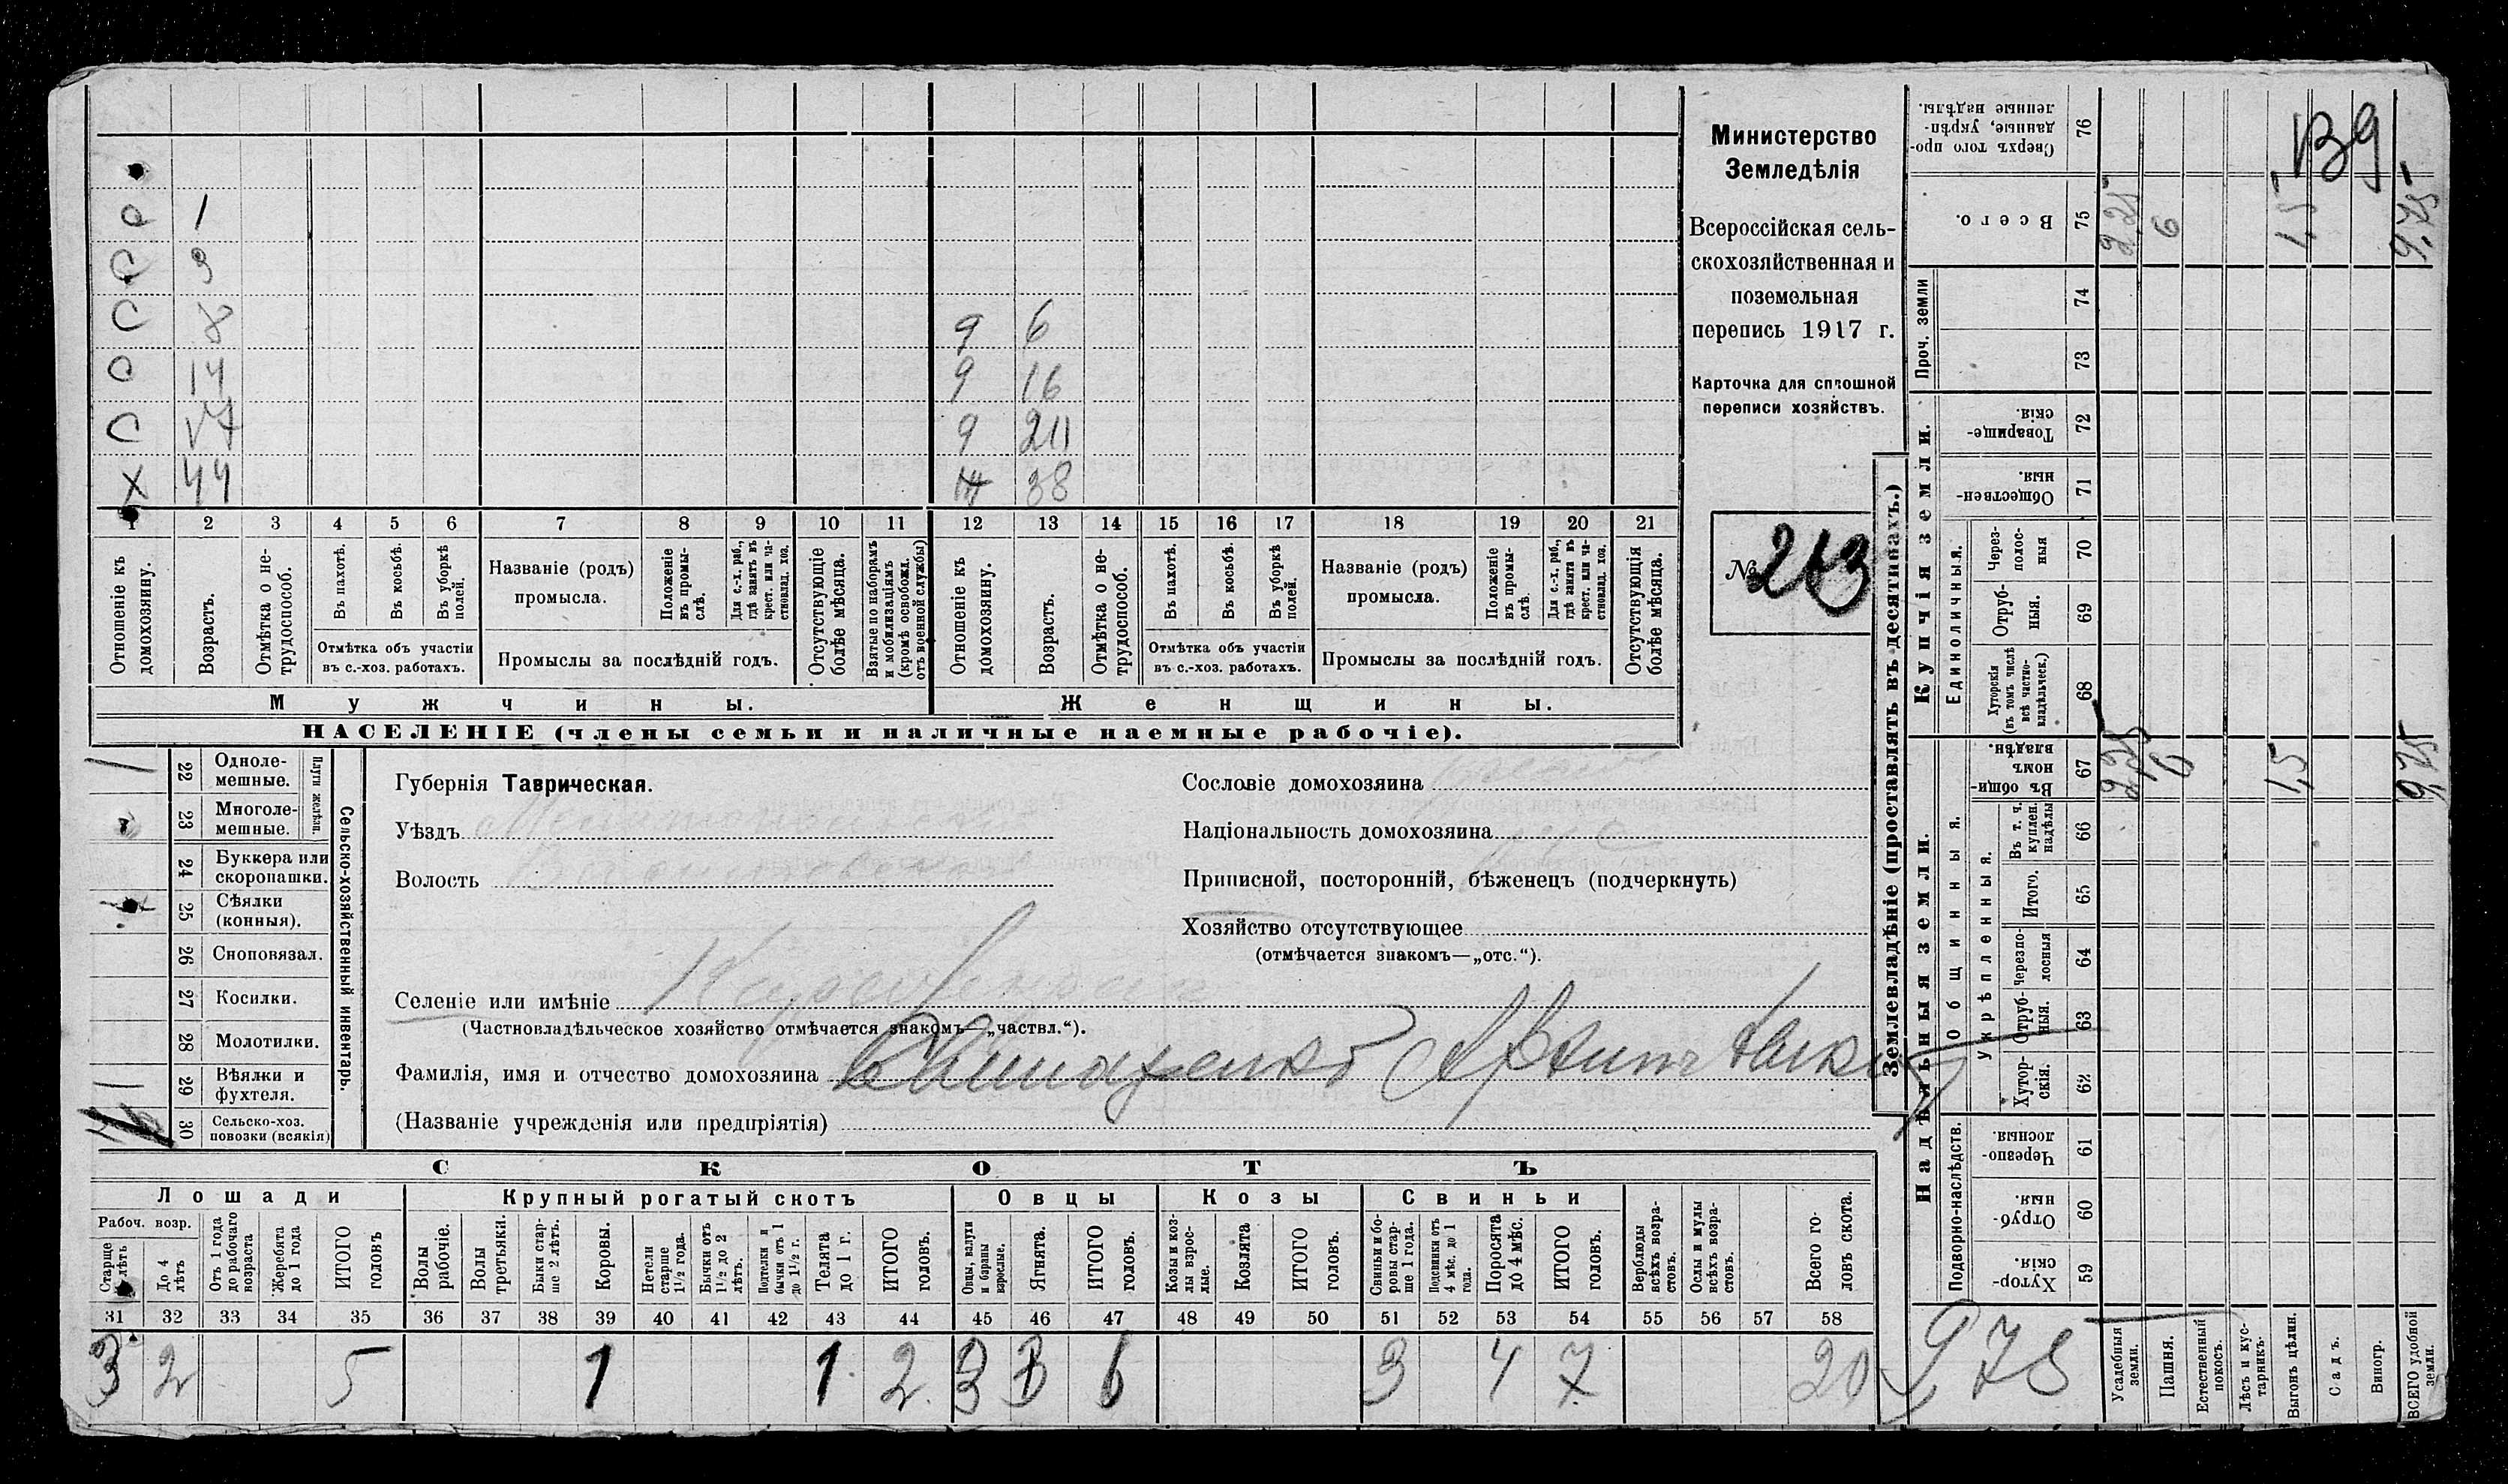 1
9
8
14
17
44
9 6
9 16
9
38
1 2 3 4 5 6 7 8 9 10 11 12 13 14 15 16 17 18 19 20 21
Отношеніе къ домохозяину.
Возрастъ.
Отмѣтка о не-
трудоспособ.
Въ пахотѣ.
Въ косьбѣ.
Въ уборкѣ
полей.
Отмѣтка объ участіи
въ с.-хоз. работахъ.
Названіе (родъ)
промысла.
Положеніе
въ промы-
слѣ.
Для с.-х. раб.,
гдѣ занятъ въ
крест. или ча-
стновлад. хоз.
Промыслы за послѣдній годъ.
Отсутствующіе
болѣе мѣсяца.
Взятые по наборамъ
и мобилизаціямъ
(кромѣ освобожд.
отъ военной службы)
Отношеніе къ
домохозяину.
Возрастъ.
Отмѣтка о не-
трудоспособ.
Въ пахотѣ.
Въ косьбѣ.
Въ уборкѣ
полей.
Отмѣтка объ участіи
въ с.-хоз. работахъ.
Названіе (родъ)
промысла.
Положеніе
въ промы-
слѣ.
Для с.-х. раб.,
гдѣ занята въ
крест. или ча-
стновлад. хоз.
Промыслы за послѣдній годъ.
Отсутствующія
болѣе мѣсяца.
Мужчины.
Женщины.
НАСЕЛЕНІЕ (члены семьи и наличные наемные рабочіе).
Министерство
Земледѣлія
Всероссійская сель-
скохозяйственная и
поземельная
перепись 1917 г.
Карточка для сплошной
переписи хозяйствъ.
№ 213
22 Одноле-
мешные.
23 Многоле-
мешные.
Плуги желѣзн.
24 Буккера или
скоропашки.
25 Сѣялки
(конныя).
26 Сноповязал.
27 Косилки.
28 Молотилки.
29 Вѣялки и
фухтеля.
30 Сельско-хоз.
повозки (всякія)
Сельско-хозяйственный инвентарь.
Губернія Таврическая.
Уѣздъ
Волость
Селеніе или имѣніе
(Частновладѣльческое хозяйство отмѣчается знакомъ—„частвл.“).
Фамилія, имя и отчество домохозяина
(Названіе учрежденія или предпріятія)
Сословіе домохозяина
Національность домохозяина
Приписной, посторонній, бѣженецъ (подчеркнуть)
Хозяйство отсутствующее
(отмѣчается знакомъ—„отс.“).
СКОТЪ
Лошади
Рабоч. возр.
Старше
лѣтъ
До 4
лѣтъ
Отъ 1 года
до рабочаго
возраста
Жеребята
до 1 года
ИТОГО
головъ
Крупный рогатый скотъ
Волы
рабочіе.
Волы
третьяки.
Быки стар-
ше 2 лѣтъ.
Коровы.
Нетели
старше
1½ года.
Бычки отъ
1½ до 2
лѣтъ.
Подтелки и
бычки отъ 1
до 1½ г.
Телята
до 1 г.
ИТОГО
головъ.
Овцы
Овцы, валухи
и бараны
взрослые.
Ягнята.
ИТОГО
головъ.
Козы
Козы и коз-
лы взрос-
лые.
Козлята
ИТОГО
головъ.
Свиньи
Свиньи и бо-
ровы стар-
ше 1 года.
Подсвинки отъ
4 мѣс. до 1
года.
Поросята
до 4 мѣс.
ИТОГО
головъ.
Верблюды
всѣхъ возра-
стовъ.
Ослы и мулы
всѣхъ возра-
стовъ.
Всего го-
ловъ скота.
31 32 33 34 35 36 37 38 39 40 41 42 43 44 45 46 47 48 49 50 51 52 53 54 55 56 57 58
3 2 5 1 1 2 3 3 6 3 4 7 20
Землевладѣніе (проставлять въ десятинахъ.)
Купчія земли.
Проч. земли
Надѣльныя земли.
Сверхъ того про-
данные, укрѣп-
ленные надѣлы.
76
Всего.
75
74
73
Товарище-
скія.
72
Обществен-
ныя.
71
Единоличныя.
Через-
полос-
ныя
70
Отруб-
ныя.
69
Хуторскія
(въ томъ числѣ
всѣ частно-
владѣльческ.)
68
Въ общин-
номъ
владѣн.
67
Общинныя.
Укрѣпленныя.
Въ т. ч.
куплен.
надѣлы
66
Итого.
65
Черезпо-
лосныя
64
Отруб-
ныя.
63
Хутор-
скія.
62
Подворно-наслѣдств.
Черезпо-
лосныя.
61
Отруб-
ныя.
60
Хутор-
скія.
59
2,25 6 1,5 9,75
2,25 6 1,5 9,75
9,75
Усадебныя
земли.
Пашня.
Естественный
покосъ.
Лѣсъ и кус-
тарникъ.
Выгонъ цѣлин.
Садъ.
Виногр.
ВСЕГО удобной
земли.